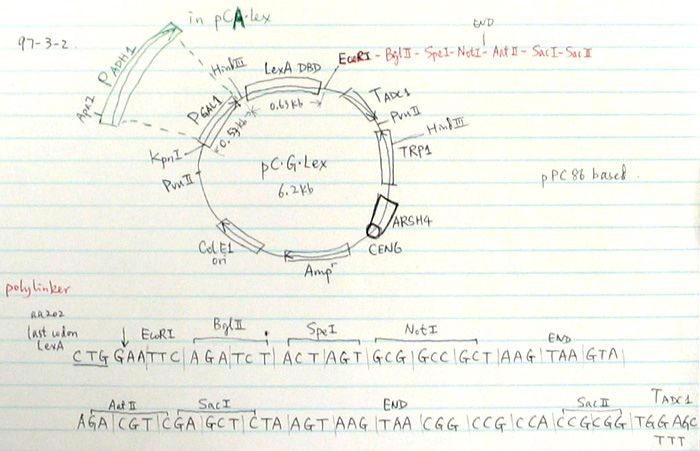 97-3-2.
in pCA-lex
PADH1
Apa2
END
EcoRI - BglII - SpeI - NotI - AatII - SacI - SacII
HindIII
LexA DBD
0.63Kb
PGAL1
0.53Kb
TADC1
PvuII
HindIII
TRP1
KpnI
PvuII
pC·G·Lex
6.2Kb
pPC86 based.
ARSH4
CEN6
ColE1
ori
Ampr
polylinker
aa202
last codon
LexA
EcoRI
BglII
SpeI
NotI
END
CTG GAA|TTC|AGA|TCT|ACT|AGT|GCG|GCC|GCT|AAG|TAA|GTA|
AatII
SacI
END
SacII
TADC1
AGA|CGT|CGA|GCT|CTA|AGT|AAG|TAA|CGG|CCG|CCA|CCGCGG|TGGAGC
TTT